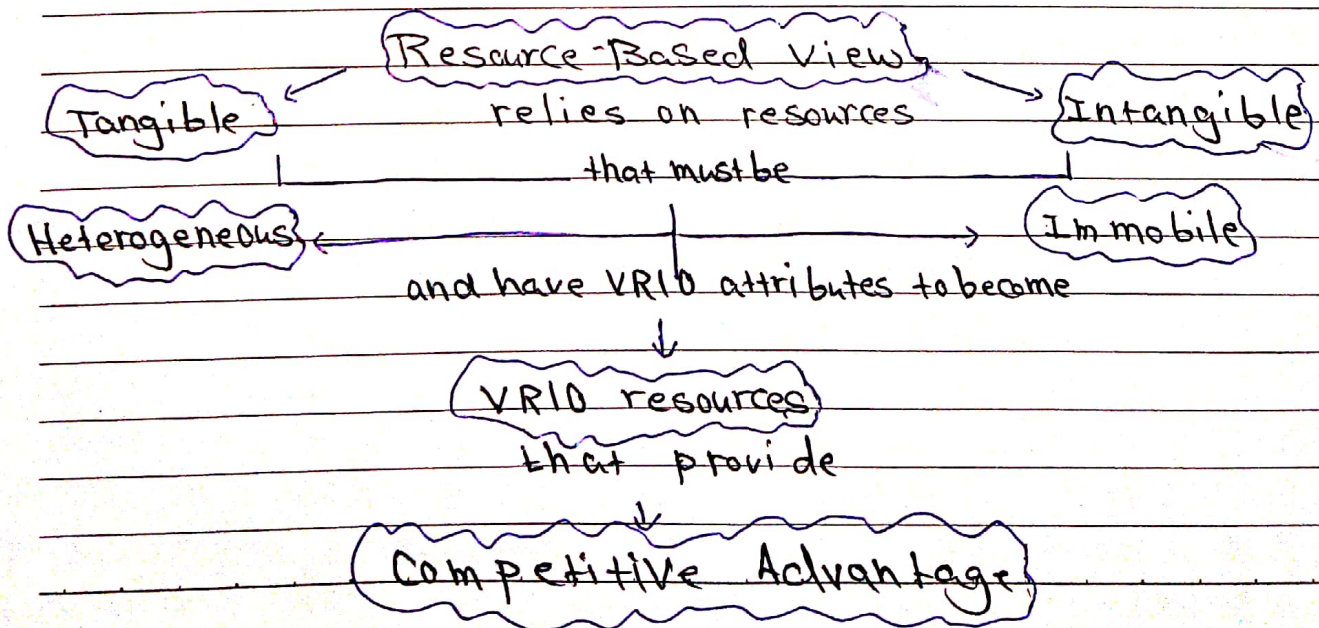 Resource-Based View
Tangible
relies on resources
Intangible
that must be
Heterogeneous
Immobile
and have VRIO attributes to become
VRIO resources
that provide
Competitive Advantage